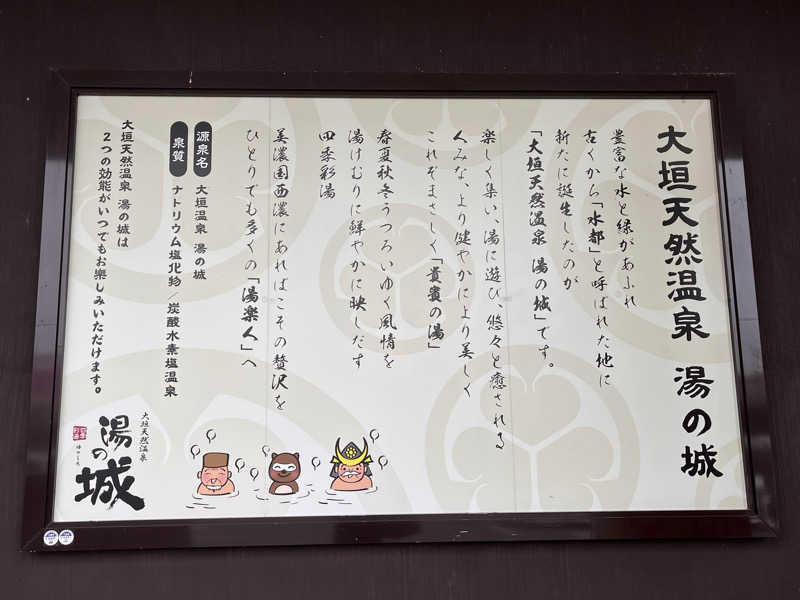 大垣天然温泉 湯の城
豊富な水と緑があふれ
古くから「水都」と呼ばれた地に
新たに誕生したのが
「大垣天然温泉 湯の城」です。
楽しく集い、湯に遊び、悠々と癒される
人みな、より健やかにより美しく
これぞまさしく「貴賓の湯」
春夏秋冬うつろいゆく風情を
湯けむりに鮮やかに映しだす
四季彩湯
美濃国西濃にあればこその贅沢を
ひとりでも多くの「湯楽人」へ
源泉名 大垣温泉 湯の城
泉質 ナトリウム塩化物／炭酸水素塩温泉
大垣天然温泉 湯の城は
2つの効能がいつでもお楽しみいただけます。
大垣天然温泉
湯の城
ゆのしろ